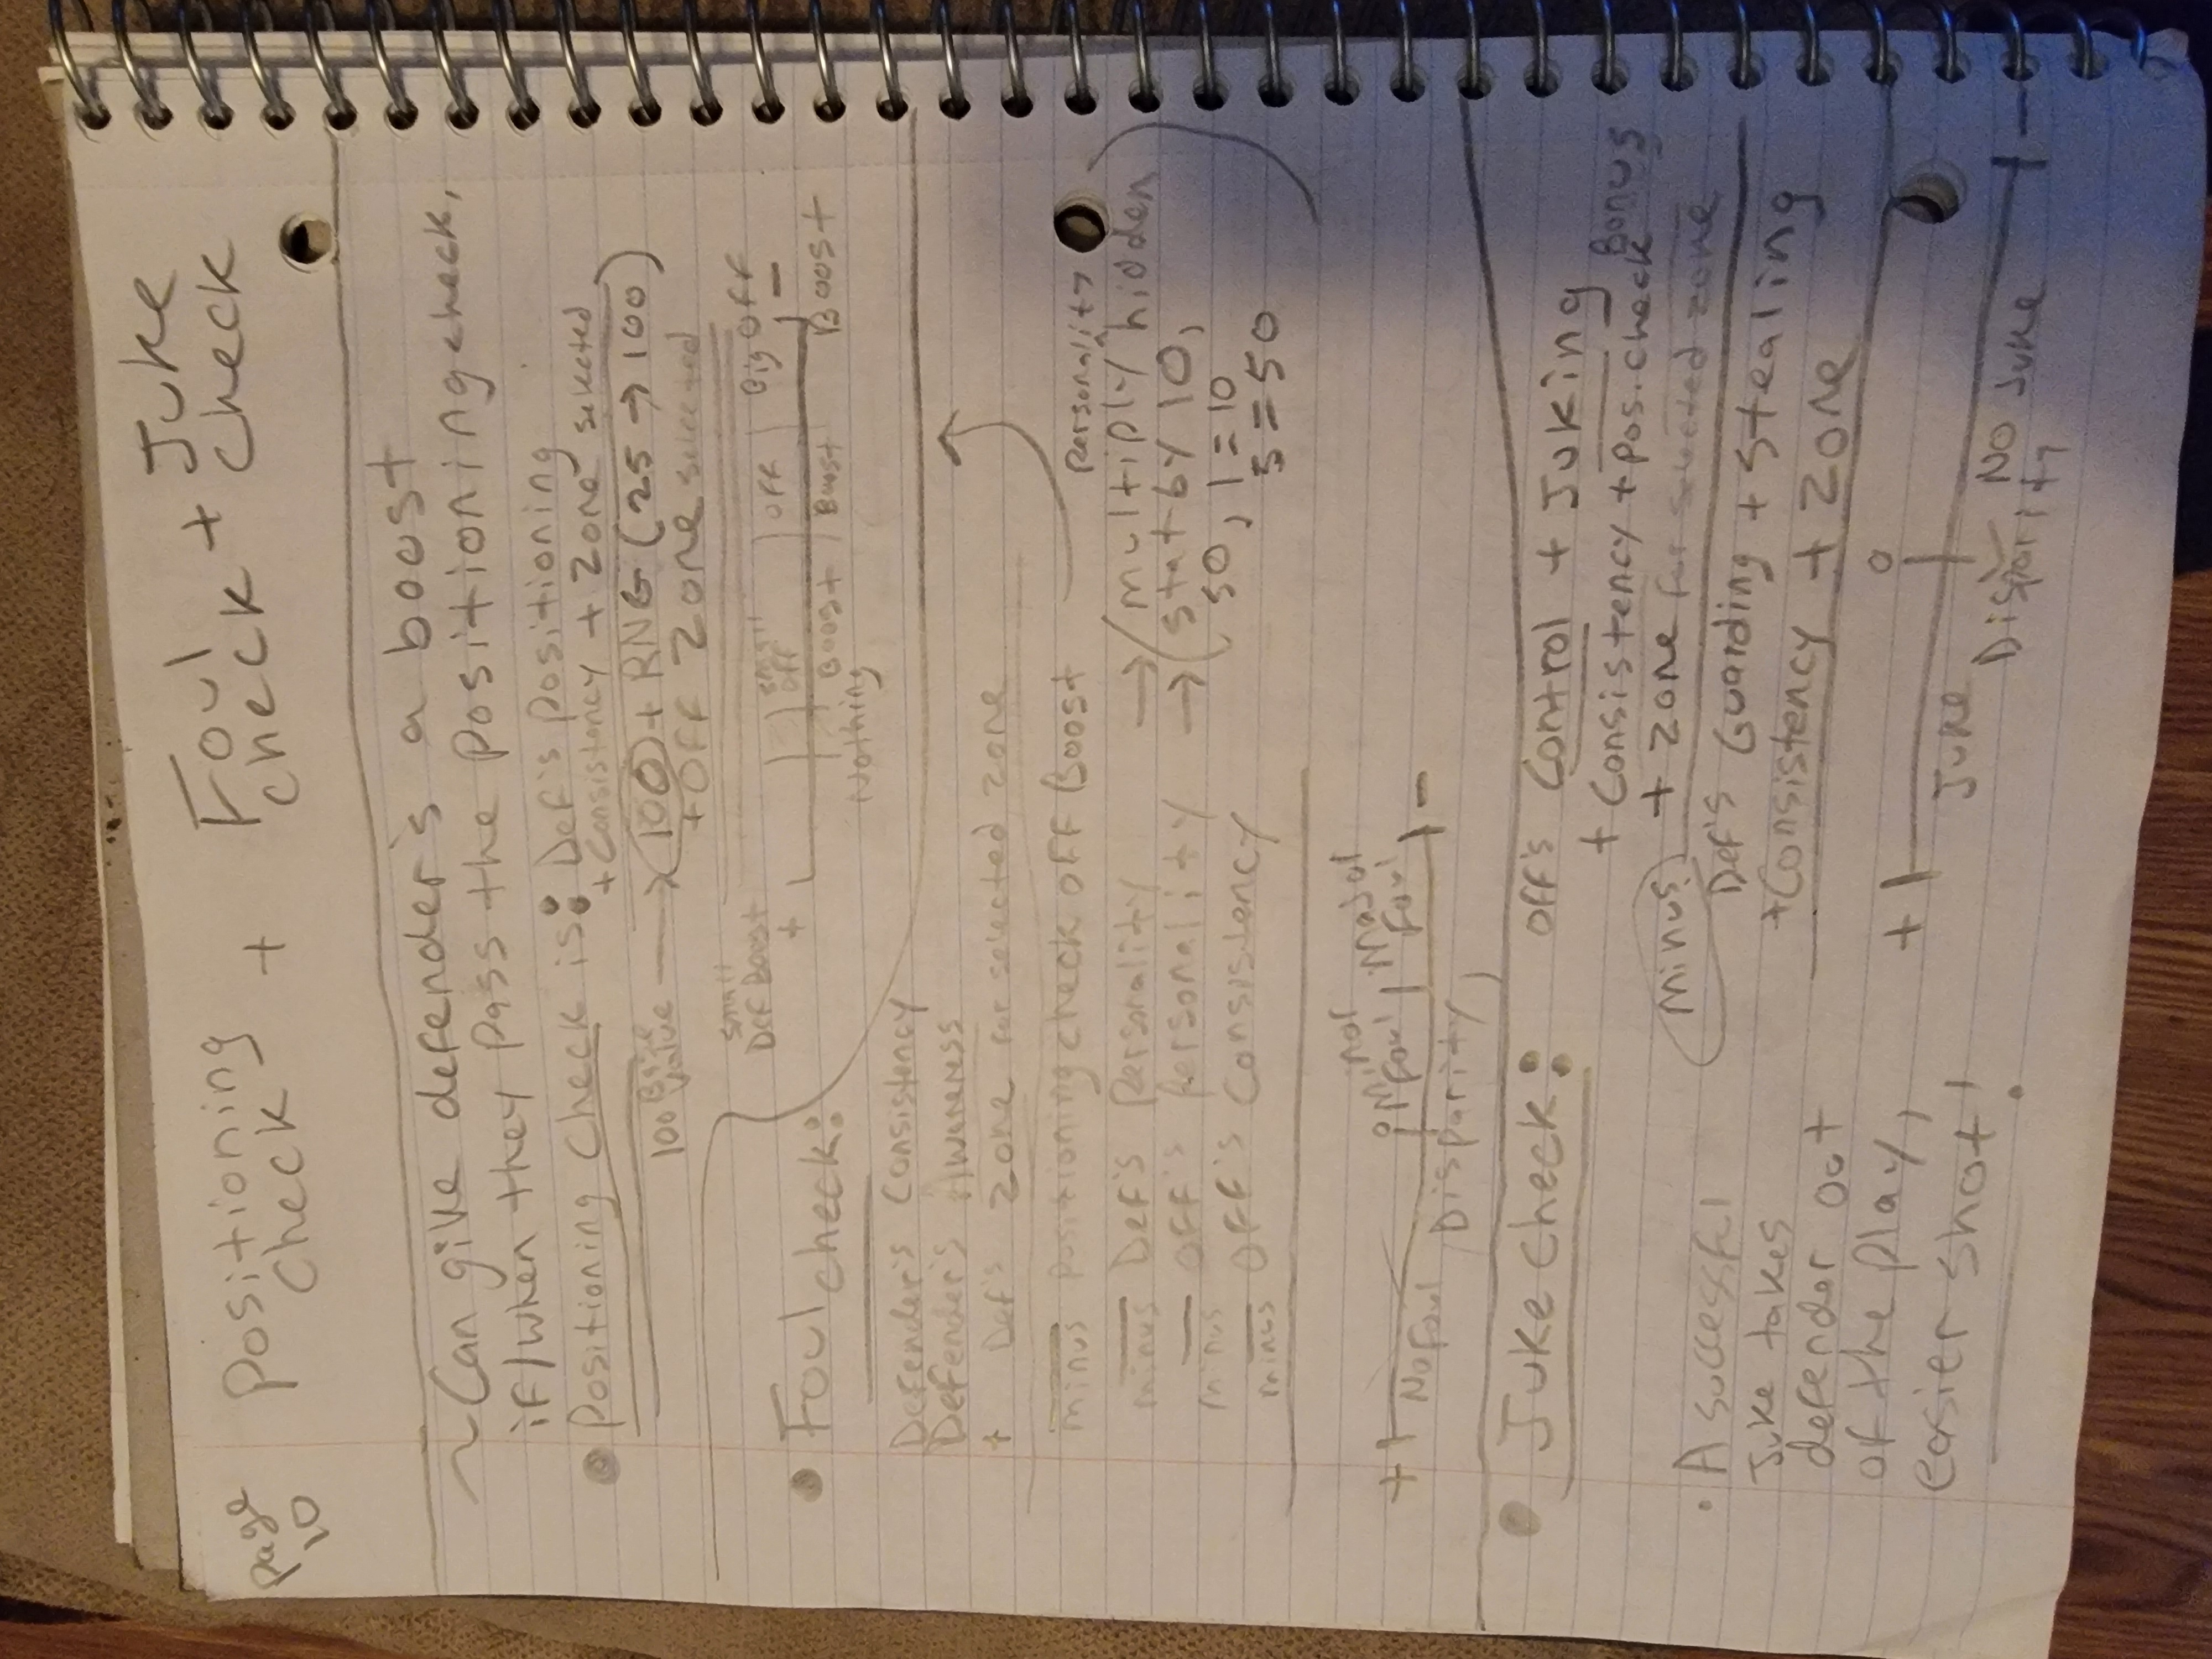 Page
10
Positioning
Check
+
Foul
check
+
Juke
check
~ Can give defender's a boost
if/when they pass the positioning check,
• Positioning Check is: Def's positioning
+ Consistency + Zone selected
100 Base Value → 100 + RNG (25 → 100)
+ Off Zone selected
small
Def Boost
+
Nothing
small
off
Boost
off
Boost
Big Off
Boost
-
• Foul check:
Defender's Consistency
Defender's Awareness
+ Def's zone for selected zone
minus Positioning check off Boost
minus Def's Personality →
minus Off's Personality →
minus Off's Consistency
Personality
(multiply hidden
stat by 10,
50, 1 = 10
5 = 50)
+ No Foul
0
Minor
Foul
Major
Foul
-
Disparity
• Juke check: Off's Control + Juking
+ Consistency + Pos. check Bonus
+ Zone for selected zone
minus
Def's Guarding + Stealing
+ Consistency + Zone
+ Juke
0
Disparity
No Juke
-
• A successful
Juke takes
defender out
of the play,
easier shot!